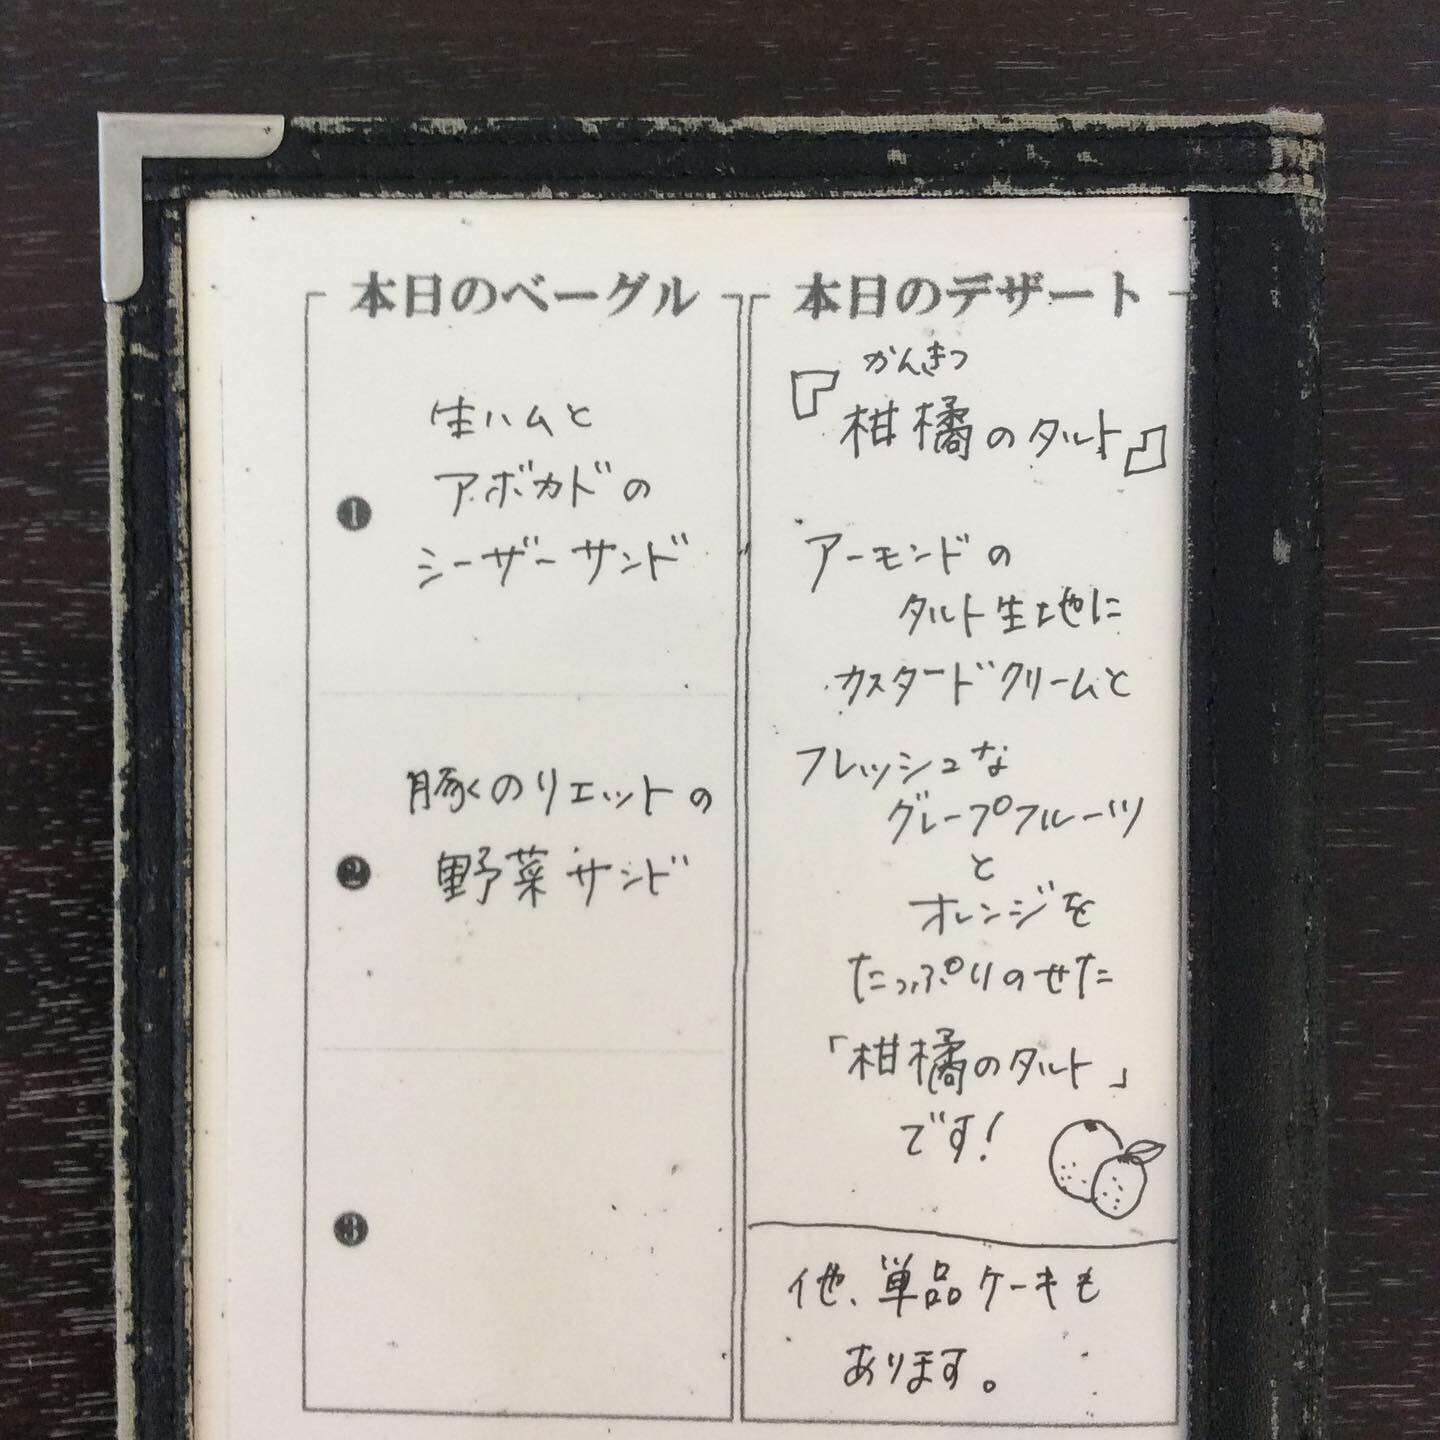 本日のベーグル
❶
生ハムと
アボカドの
シーザーサンド
❷
豚のリエットの
野菜サンド
❸
本日のデザート
かんきつ
『柑橘のタルト』
アーモンドの
タルト生地に
カスタードクリームと
フレッシュな
グレープフルーツ
と
オレンジを
たっぷりのせた
「柑橘のタルト」
です!
他、単品ケーキも
あります。